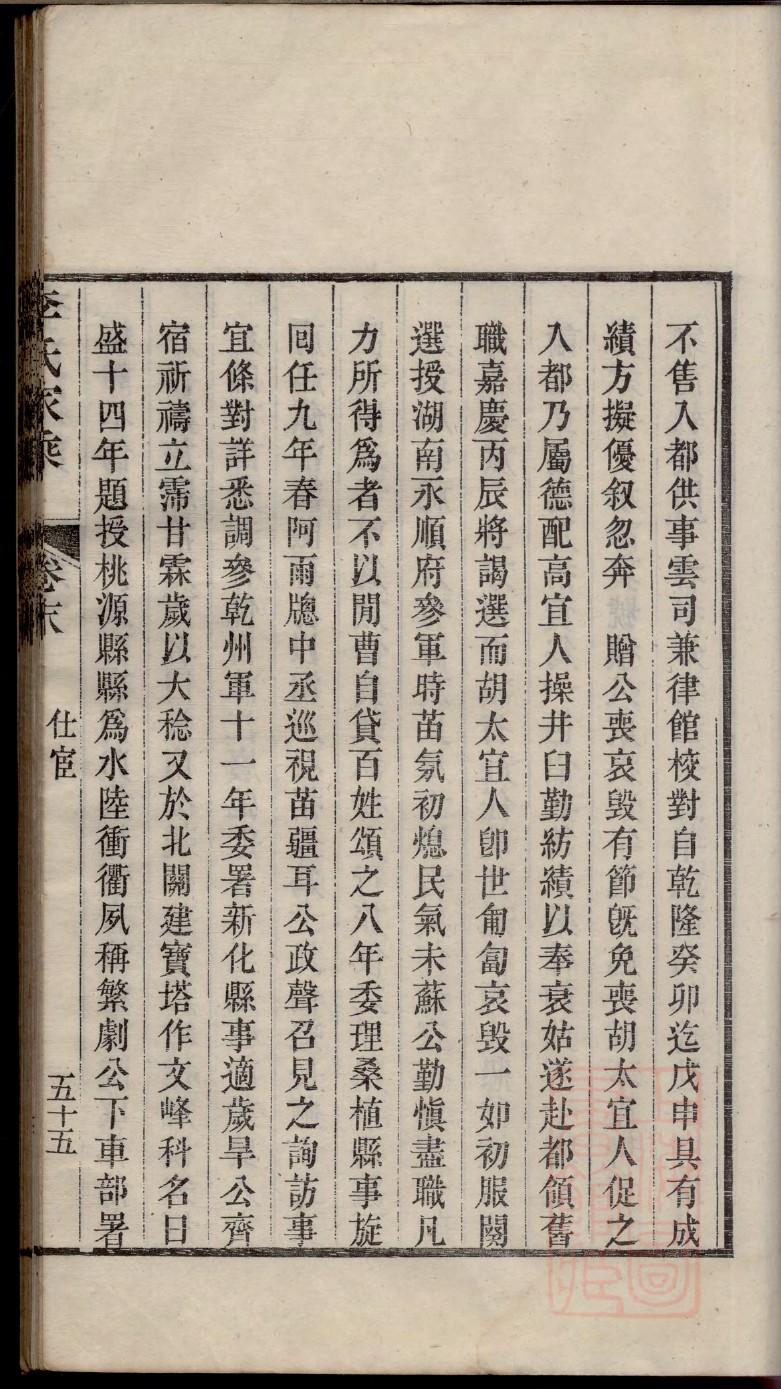 不售入都供事雲司兼律館校對自乾隆癸卯迄戊申具有成
績方擬優叙忽奔　贈公喪哀毀有節旣免喪胡太宜人促之
入都乃屬德配高宜人操井臼勤紡績以奉衰姑遂赴都領舊
職嘉慶丙辰將謁選而胡太宜人卽世匍匐哀毀一如初服闋
選授湖南永順府參軍時苗氛初熄民氣未蘇公勤愼盡職凡
力所得爲者不以閒曹自貸百姓頌之八年委理桑植縣事旋
囘任九年春阿雨牕中丞巡視苗疆耳公政聲召見之詢訪事
宜條對詳悉調參乾州軍十一年委署新化縣事適歲旱公齊
宿祈禱立霈甘霖歲以大稔又於北關建寶塔作文峰科名日
盛十四年題授桃源縣縣爲水陸衝衢夙稱繁劇公下車部署
李氏家乘　卷末　仕宦　五十五